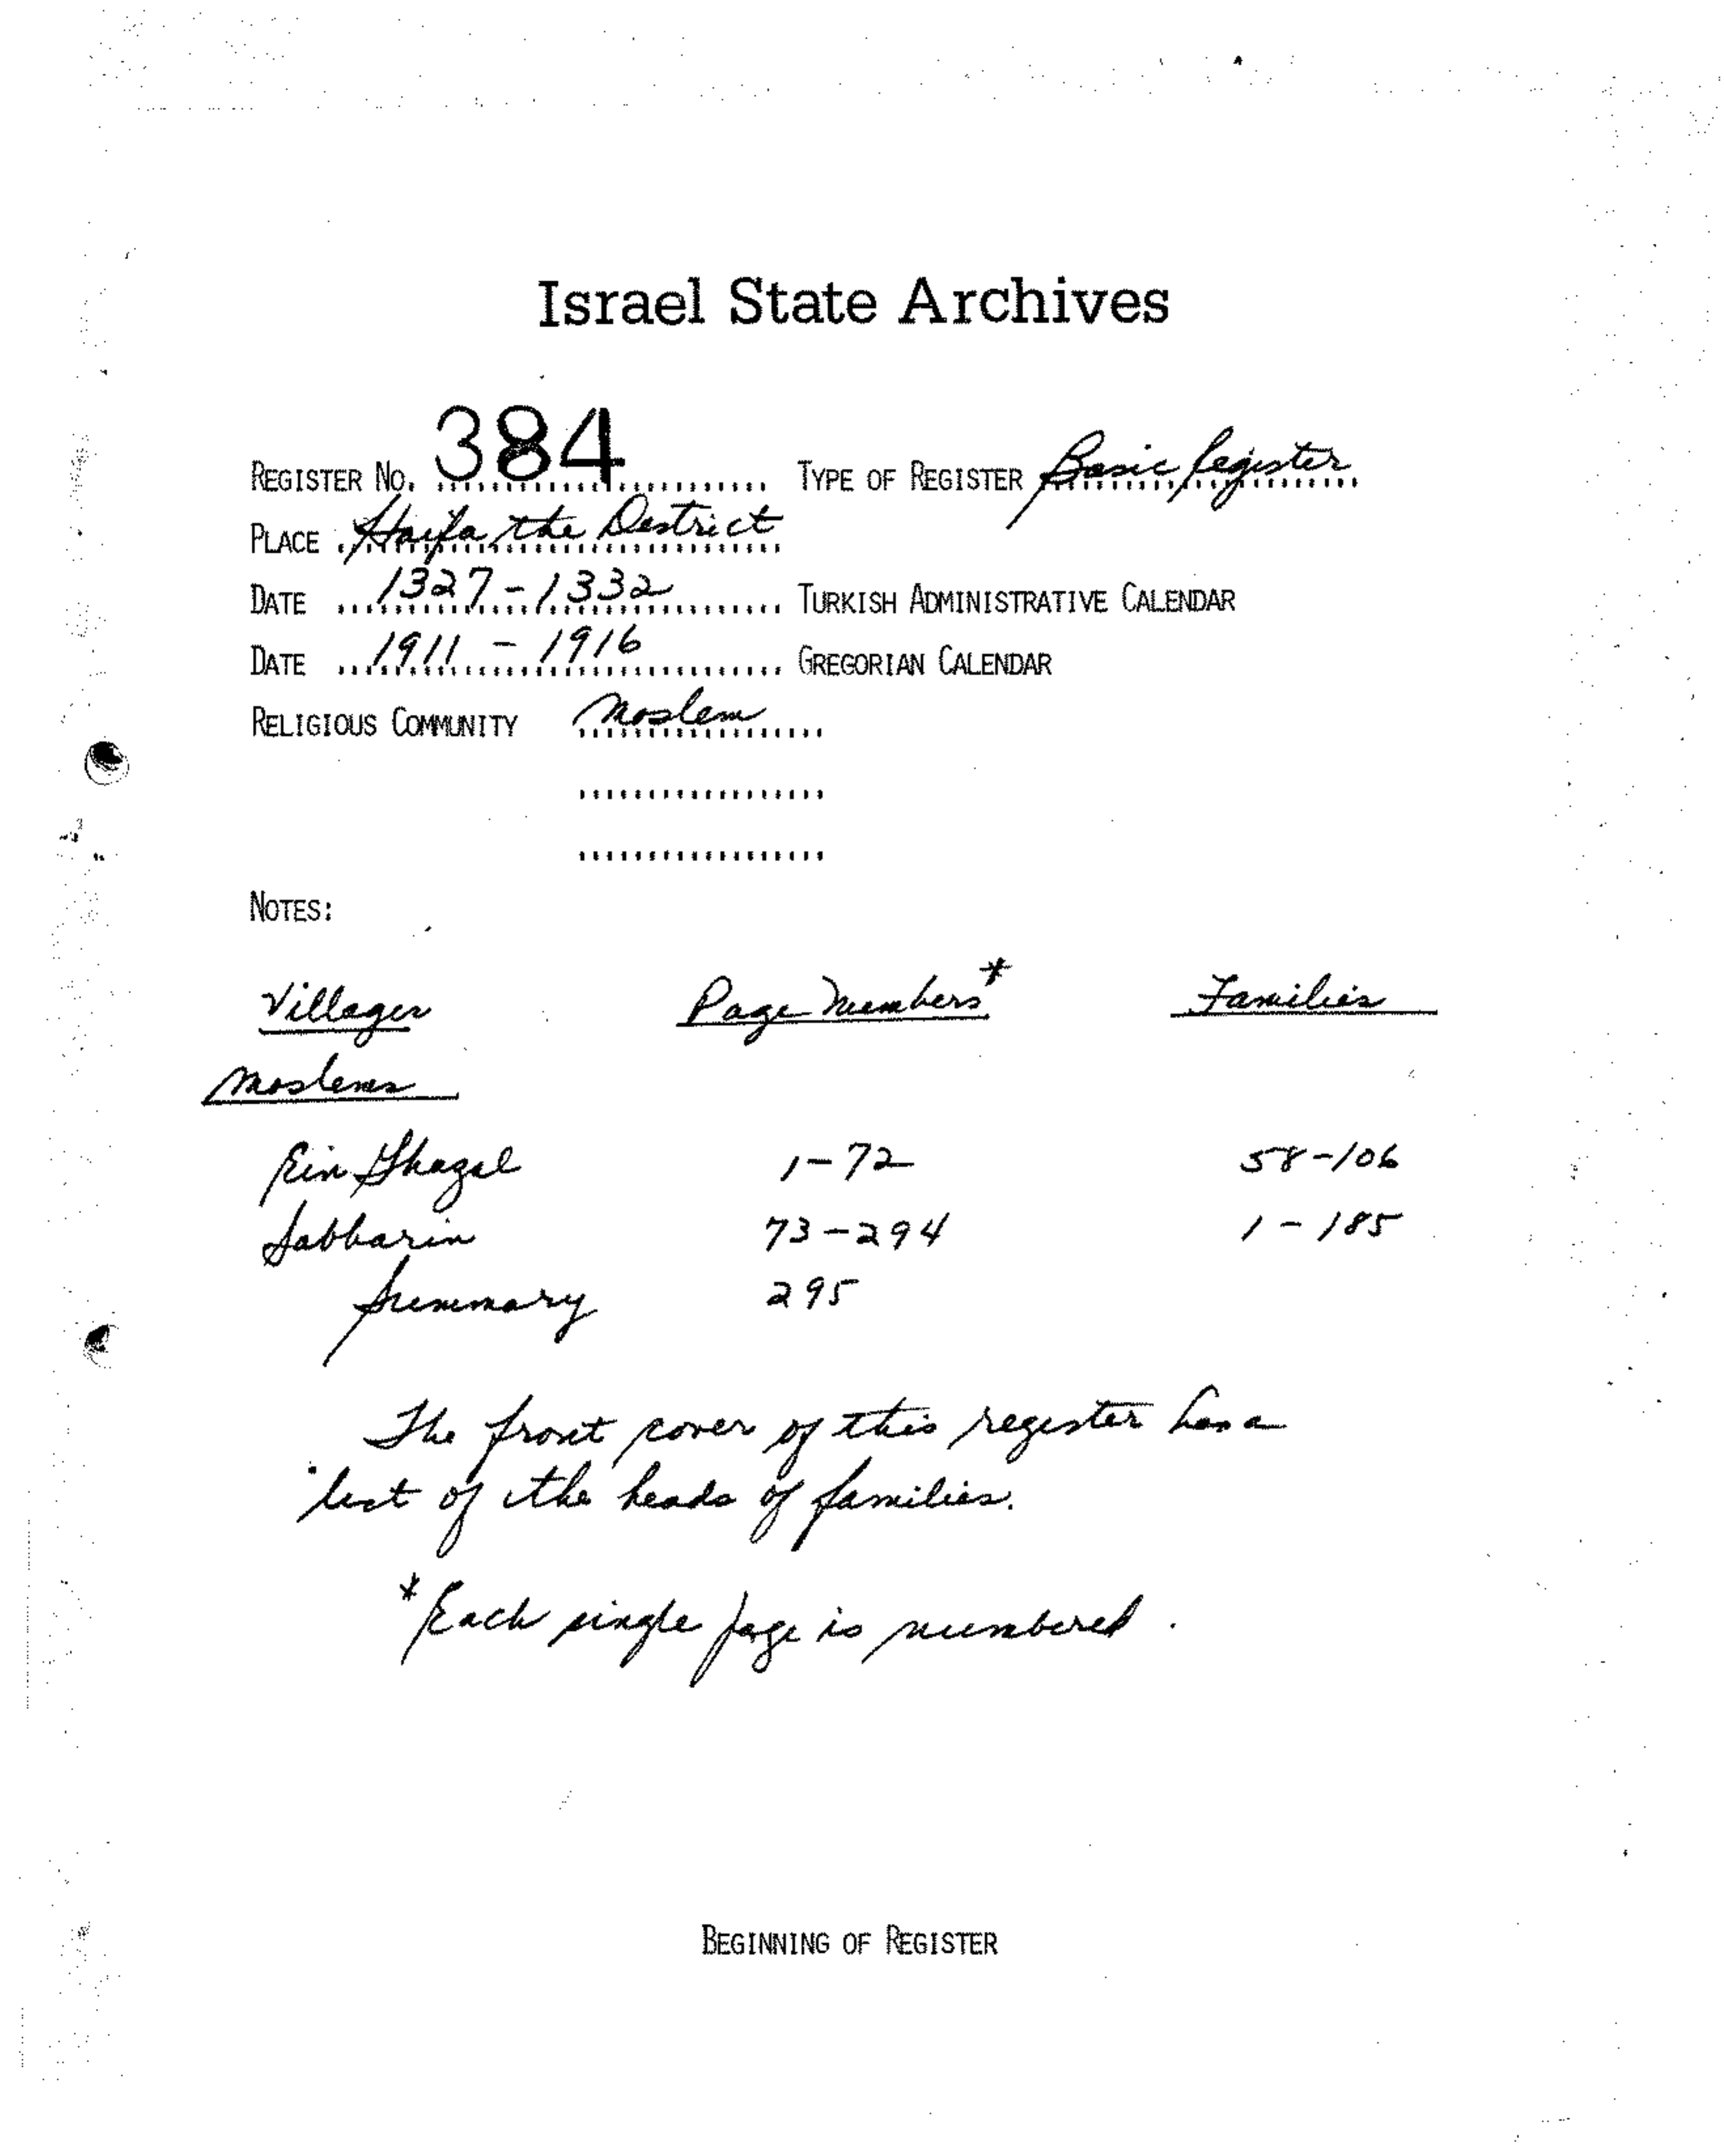 Israel State Archives
REGISTER NO. 384 TYPE OF REGISTER Basic Register
PLACE Haifa the District
DATE 1327-1332 TURKISH ADMINISTRATIVE CALENDAR
DATE 1911 - 1916 GREGORIAN CALENDAR
RELIGIOUS COMMUNITY Moslem
NOTES:
Villages Page Numbers* Families
Moslems
Ein Ghazal 1-72 58-106
Sabbarin 73-294 1-185
Summary 295
The front cover of this register has a
list of the heads of families.
*Each single page is numbered.
BEGINNING OF REGISTER